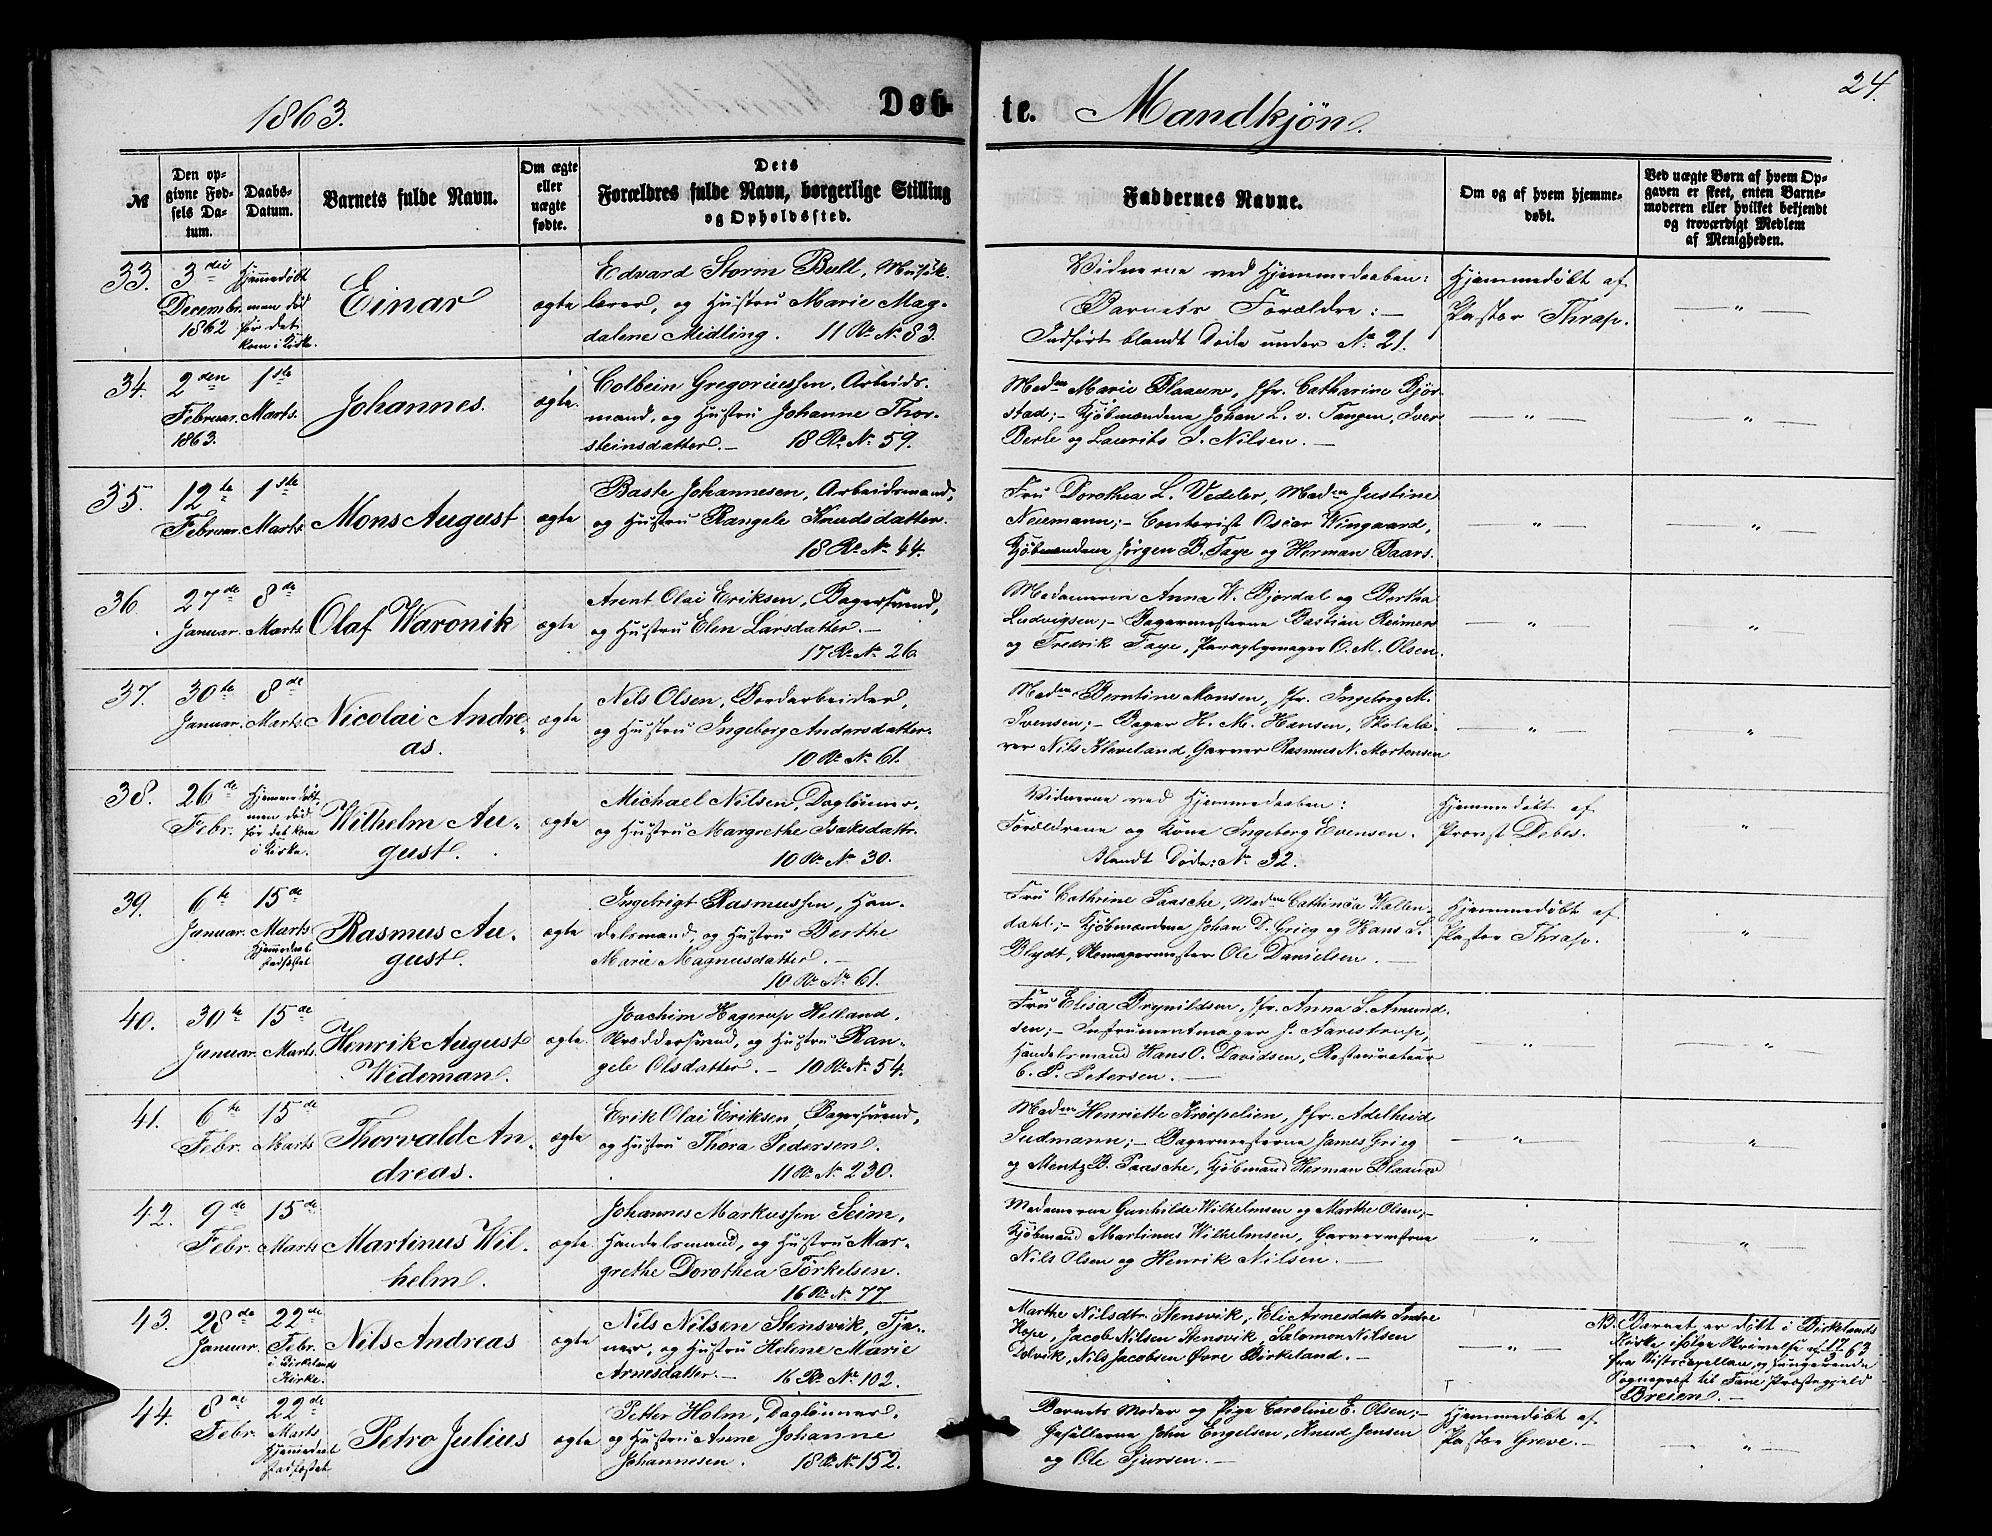 24.
1863.
Døb-
te. Mandkjøn.
№
Den op-
givne Fød-
sels Da-
tum.
Daabs-
Datum.
Barnets fulde Navn.
Om ægte
eller
uægte
fødte.
Dets
Forældres fulde Navn, borgerlige Stilling
og Opholdssted.
Faddernes Navne.
Om og af hvem hjemme-
døbt.
Ved uægte Børn af hvem Op-
gaven er skeet, enten Barne-
moderen eller hvilket bekjendt
og troværdigt Medlem
af Menigheden.
33.
3die
Decembr.
1862
Hjemmedøbt
men død
før det
kom i Kirke.
Einar
ægte
Edvard Storm Bull, Musik-
lærer, og Hustru Marie Mag-
dalene Midling. 11 R. № 83.
Vidnerne ved Hjemmedaaben:
Barnets Forældre: —
Indført blandt Døde under № 21.
Hjemmedøbt af
Pastor Thrap.
— " —
34.
2den
Februar.
1863.
1ste
Marts.
Johannes.
ægte.
Colbein Gregoriussen, Arbeids-
mand, og Hustru Johanne Thor-
steinsdatter. — 18 R. № 59.
Madm Marie Blaauw, Jfr. Catharine Bjør-
stad; — Kjøbmændene Johan L. v. Tangen, Iver
Berle og Laurits J. Nilsen. —
— " —
" —
35.
12te
Februar.
1ste
Marts.
Mons August
ægte
Baste Johannesen, Arbeidsmand,
og Hustru Rangele Knudsdatter.
18 R. № 44.
Fru Dorothea L. Vedeler, Madm Justine
Neumann; — Contorist Oscar Wingaard,
Kjøbmændene Jørgen B. Faye og Herman Baars.
— " —
" —
36
27de
Januar.
8de
Marts
Olaf Waronik
ægte
Arent Olai Eriksen, Bagersvend,
og Hustru Elen Larsdatter. —
17 R. № 26.
Madamerne Anna W. Bjordal og Bertha
Ludvigsen; — Bagermesterne Bastian Reimers
og Fredrik Faye, Paraplymager O. M. Olsen.
— " —
" —
37.
30te
Januar.
8de
Marts.
Nicolai Andre-
as.
ægte
Nils Olsen, Jordarbeider,
og Hustru Ingeborg Andersdatter.
10 R. № 61.
Madm Berntine Monsen, Jfr. Ingeborg M.
Svensen; — Bager H. M. Hansen, Skolelæ-
rer Nils Kleveland, Garver Rasmus N. Mortensen
— " —
" —
38.
26de
Febr.
Hjemmedøbt,
men død
før det kom
i Kirke.
Wilhelm Au-
gust.
ægte
Michael Nilsen, Daglønner,
og Hustru Margrethe Isaksdattr.
10 R. № 30.
Vidnerne ved Hjemmedaaben:
Forældrene og Kone Ingeborg Evensen.
Blandt Døde: № 32.
Hjemmedøbt af
Provst Debes.
" —
39.
6te
Januar.
15de
Marts
Hjemmedaab
stadfæstet
Rasmus Au-
gust.
ægte
Ingebrigt Rasmussen, Han-
delsmand, og Hustru Berthe
Marie Magnusdatter. —
10 R. № 61.
Fru Cathrine Paasche, Madm Cathinca Wallen-
dahl; — Kjøbmændene Johan D. Grieg og Hans S.
Blydt, Skomagermester Ole Danielsen. —
Hjemmedøbt af
Pastor Thrap.
" —
40.
30te
Januar.
15de
Marts.
Henrik August
Wideman.
ægte.
Joachim Hagerup Hilland,
Skræddersvend, og Hustru Ran-
gele Olsdatter. — 10 R. № 54.
Fru Elisa Brynildsen, Jfr. Anna S. Amund-
sen; — Instrumentmager J. Aarestrup,
Handelsmand Hans O. Davidsen, Restaurateur
C. P. Petersen. —
— " —
" —
41.
6te
Febr.
15de
Marts
Thorvald An-
dreas.
ægte
Erik Olai Eriksen, Bagersvend,
og Hustru Thora Pedersen.
11 R. № 230.
Madm Henriette Krøepelien, Jfr. Adelheid
Sudmann; — Bagermesterne James Grieg
og Mentz B. Paasche, Kjøbmand Herman Blaauw
— " —
" —
42.
9de
Febr.
15de
Marts
Martinus Wil-
helm.
ægte.
Johannes Markussen Seim,
Handelsmand, og Hustru Mar-
grethe Dorothea Torkelsen.
16 R. № 77
Madamerne Gunhilde Wilhelmsen og Marthe Olsen; —
Kjøbmand Martinus Wilhelmsen, Garversvendene
Nils Olsen og Henrik Nilsen. —
"
" —
43.
28de
Januar.
22de
Febr.
i Birkelands
Kirke.
Nils Andreas
ægte
Nils Nilsen Stensvik, Tje-
ner, og Hustru Helene Marie
Arnesdatter. — 16 R. № 102.
Marthe Nilsdtr. Stensvik, Eli Arnesdatter Indre
Hope, Jacob Nilsen Stensvik, Salomon Nilsen
Dolvik, Nils Jacobsen Øvre Birkeland. —
— " —
NB. Barnet er døbt i Birkelands
Kirke ifølge Skrivelse af 17/3 63
fra Stiftscapellan, og fungerende
Sognepræst til Fane Præstegjeld
Breien. —
44.
8de
Febr.
22de
Marts
Hjemmedaab
stadfæstet
Petro Julius
ægte
Petter Holm, Daglønner,
og Hustru Anne Johanne
Johannesen. 18 R. № 152.
Barnets Moder og Pige Caroline E. Olsen; —
Gesellerne John Engelsen, Knud Jensen
og Ole Sjursen. —
Hjemmedøbt af
Pastor Greve. —
— " —